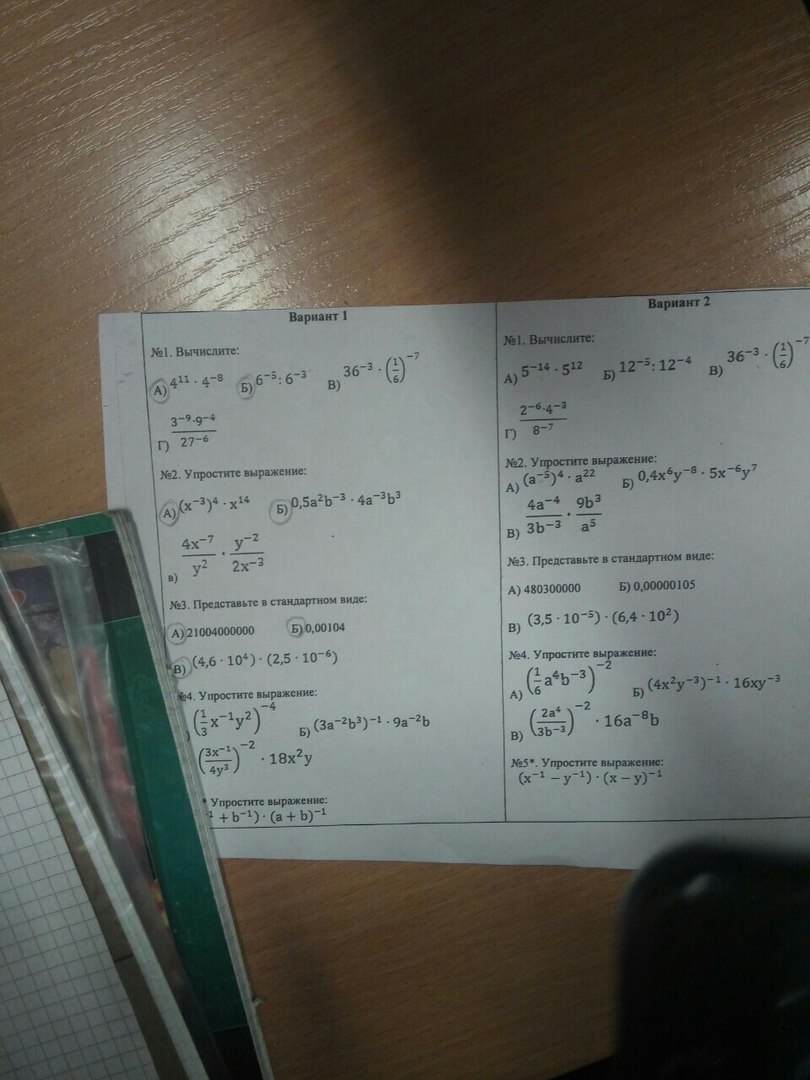 Вариант 1
№1. Вычислите:
А) 4¹¹ · 4⁻⁸ Б) 6⁻⁵ : 6⁻³ В) 36⁻³ · (1/6)⁻⁷
Г) (3⁻⁹·9⁻⁴)/(27⁻⁶)
№2. Упростите выражение:
А) (x⁻³)⁴ · x¹⁴ Б) 0,5a²b⁻³ · 4a⁻³b³
в) (4x⁻⁷)/(y²) · (y⁻²)/(2x⁻³)
№3. Представьте в стандартном виде:
А) 21004000000 Б) 0,00104
В) (4,6 · 10⁴) · (2,5 · 10⁻⁶)
№4. Упростите выражение:
) (1/3 x⁻¹y²)⁻⁴ Б) (3a⁻²b³)⁻¹ · 9a⁻²b
((3x⁻¹)/(4y³))⁻² · 18x²y
* Упростите выражение:
¹ + b⁻¹) · (a + b)⁻¹
Вариант 2
№1. Вычислите:
А) 5⁻¹⁴ · 5¹² Б) 12⁻⁵ : 12⁻⁴ В) 36⁻³ · (1/6)⁻⁷
Г) (2⁻⁶·4⁻³)/(8⁻⁷)
№2. Упростите выражение:
А) (a⁻⁵)⁴ · a²² Б) 0,4x⁶y⁻⁸ · 5x⁻⁶y⁷
В) (4a⁻⁴)/(3b⁻³) · (9b³)/(a⁵)
№3. Представьте в стандартном виде:
А) 480300000 Б) 0,00000105
В) (3,5 · 10⁻⁵) · (6,4 · 10²)
№4. Упростите выражение:
А) (1/6 a⁴b⁻³)⁻² Б) (4x²y⁻³)⁻¹ · 16xy⁻³
В) ((2a⁴)/(3b⁻³))⁻² · 16a⁻⁸b
№5*. Упростите выражение:
(x⁻¹ − y⁻¹) · (x − y)⁻¹